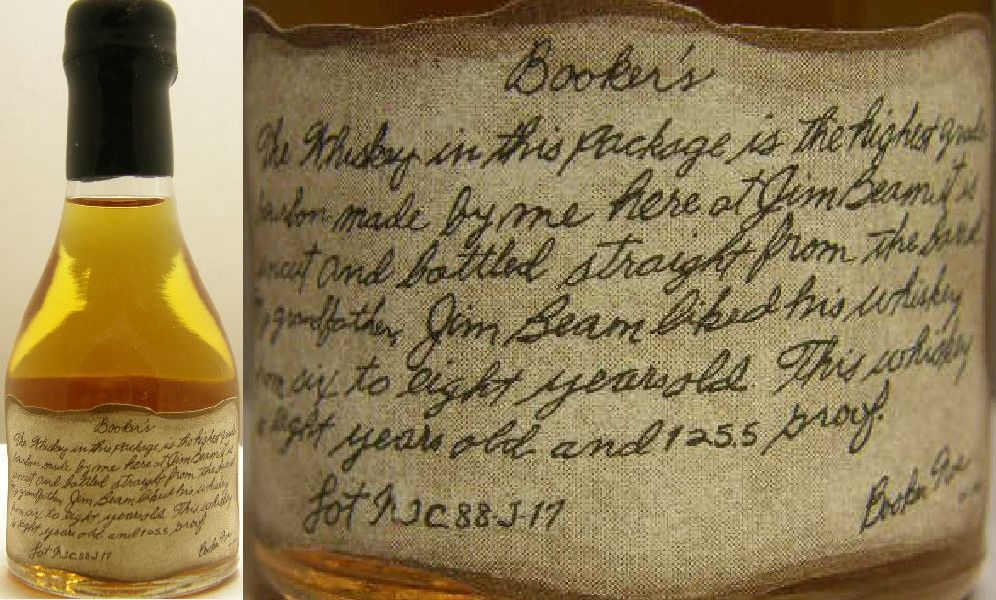 Booker's
The Whiskey in this package is the highest grade
bourbon made by me here at Jim Beam it is
uncut and bottled straight from the barrel
My grandfather, Jim Beam liked his whiskey
from six to eight years old. This whiskey
is eight years old and 125.5 proof.
Lot NJC88-J-17
Booker Noe
Booker's
The Whiskey in this package is the highest grade
bourbon made by me here at Jim Beam it is
uncut and bottled straight from the barrel
My grandfather, Jim Beam liked his whiskey
from six to eight years old. This whiskey
is eight years old and 125.5 proof.
Lot NJC88-J-17
Booker Noe